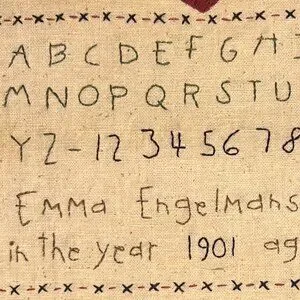 A B C D E F G H I
M N O P Q R S T U
Y Z - 1 2 3 4 5 6 7 8
Emma Engelmans
in the year 1901 ag